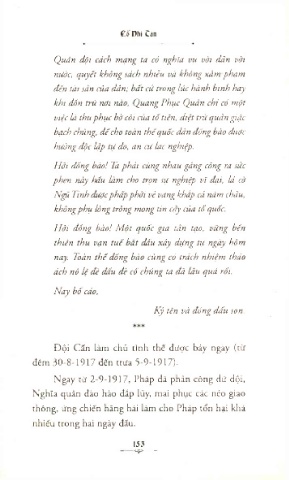 Cố Nhi Tân
Quân đội cách mạng ta có nghĩa vụ với dân với
nước, quyết không sách nhiễu và không xâm phạm
đến tài sản của dân; bất cứ trong lúc hành binh hay
khi đồn trú nơi nào, Quang Phục Quân chỉ có một
việc là thu phục bờ cõi của tổ tiên, diệt trừ quân giặc
bạch chủng, để cho toàn thể quốc dân đồng bào được
hưởng độc lập tự do, an cư lạc nghiệp.
Hỡi đồng bào! Ta phải cùng nhau gắng công ra sức
phen này hầu làm cho trọn sự nghiệp vĩ đại, lá cờ
Ngũ Tinh được phấp phới vẻ vang khắp cả năm châu,
không phụ lòng trông mong tin cậy của tổ quốc.
Hỡi đồng bào! Một quốc gia tân tạo, vững bền
thiên thu vạn tuế bắt đầu xây dựng tự ngày hôm
nay. Toàn thể đồng bào cùng có trách nhiệm tháo
ách nô lệ đè đầu đè cổ chúng ta đã lâu quá rồi.
Nay bố cáo,
Ký tên và đóng dấu son
***
Đội Cấn làm chủ tình thế được bảy ngày (từ
đêm 30-8-1917 đến trưa 5-9-1917).
Ngay từ 2-9-1917, Pháp đã phản công dữ dội,
Nghĩa quân đào hào đắp lũy, mai phục các nẻo giao
thông, ứng chiến hăng hái làm cho Pháp tổn hại khá
nhiều trong hai ngày đầu.
153